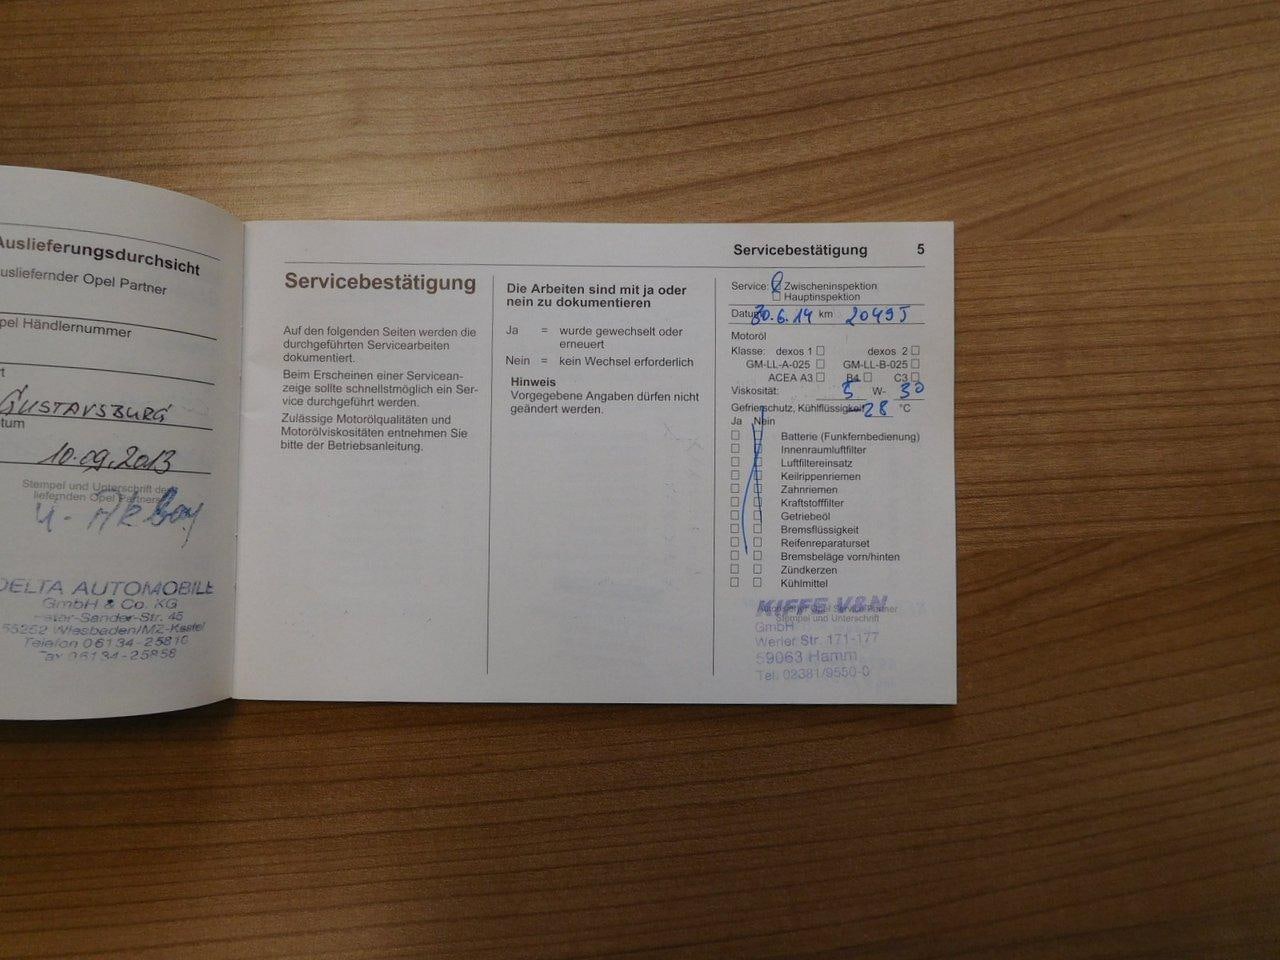 Auslieferungsdurchsicht
usliefernder Opel Partner
pel Händlernummer
rt
GUSTAVSBURG
tum
10.09.2013
Stempel und Unterschrift des
liefernden Opel Partners
DELTA AUTOMOBILE
GmbH & Co. KG
eter-Sander-Str. 45
55252 Wiesbaden/MZ-Kastel
Telefon 06134-25810
Fax 06134-25858
Servicebestätigung 5
Servicebestätigung
Auf den folgenden Seiten werden die
durchgeführten Servicearbeiten
dokumentiert.
Beim Erscheinen einer Servicean-
zeige sollte schnellstmöglich ein Ser-
vice durchgeführt werden.
Zulässige Motorölqualitäten und
Motorölviskositäten entnehmen Sie
bitte der Betriebsanleitung.
Die Arbeiten sind mit ja oder
nein zu dokumentieren
Ja = wurde gewechselt oder
erneuert
Nein = kein Wechsel erforderlich
Hinweis
Vorgegebene Angaben dürfen nicht
geändert werden.
Service: Zwischeninspektion
Hauptinspektion
Datum 30.6.14 km 20495
Motoröl
Klasse: dexos 1 dexos 2
GM-LL-A-025 GM-LL-B-025
ACEA A3 B4 C3
Viskosität: 5 W- 30
Gefrierschutz, Kühlflüssigkeit 28 °C
Ja Nein
Batterie (Funkfernbedienung)
Innenraumluftfilter
Luftfiltereinsatz
Keilrippenriemen
Zahnriemen
Kraftstofffilter
Getriebeöl
Bremsflüssigkeit
Reifenreparaturset
Bremsbeläge vorn/hinten
Zündkerzen
Kühlmittel
Autorisierter Opel Service Partner
Stempel und Unterschrift
KIFFE V&N
GmbH
Werler Str. 171-177
59063 Hamm
Tel. 02381/9550-0